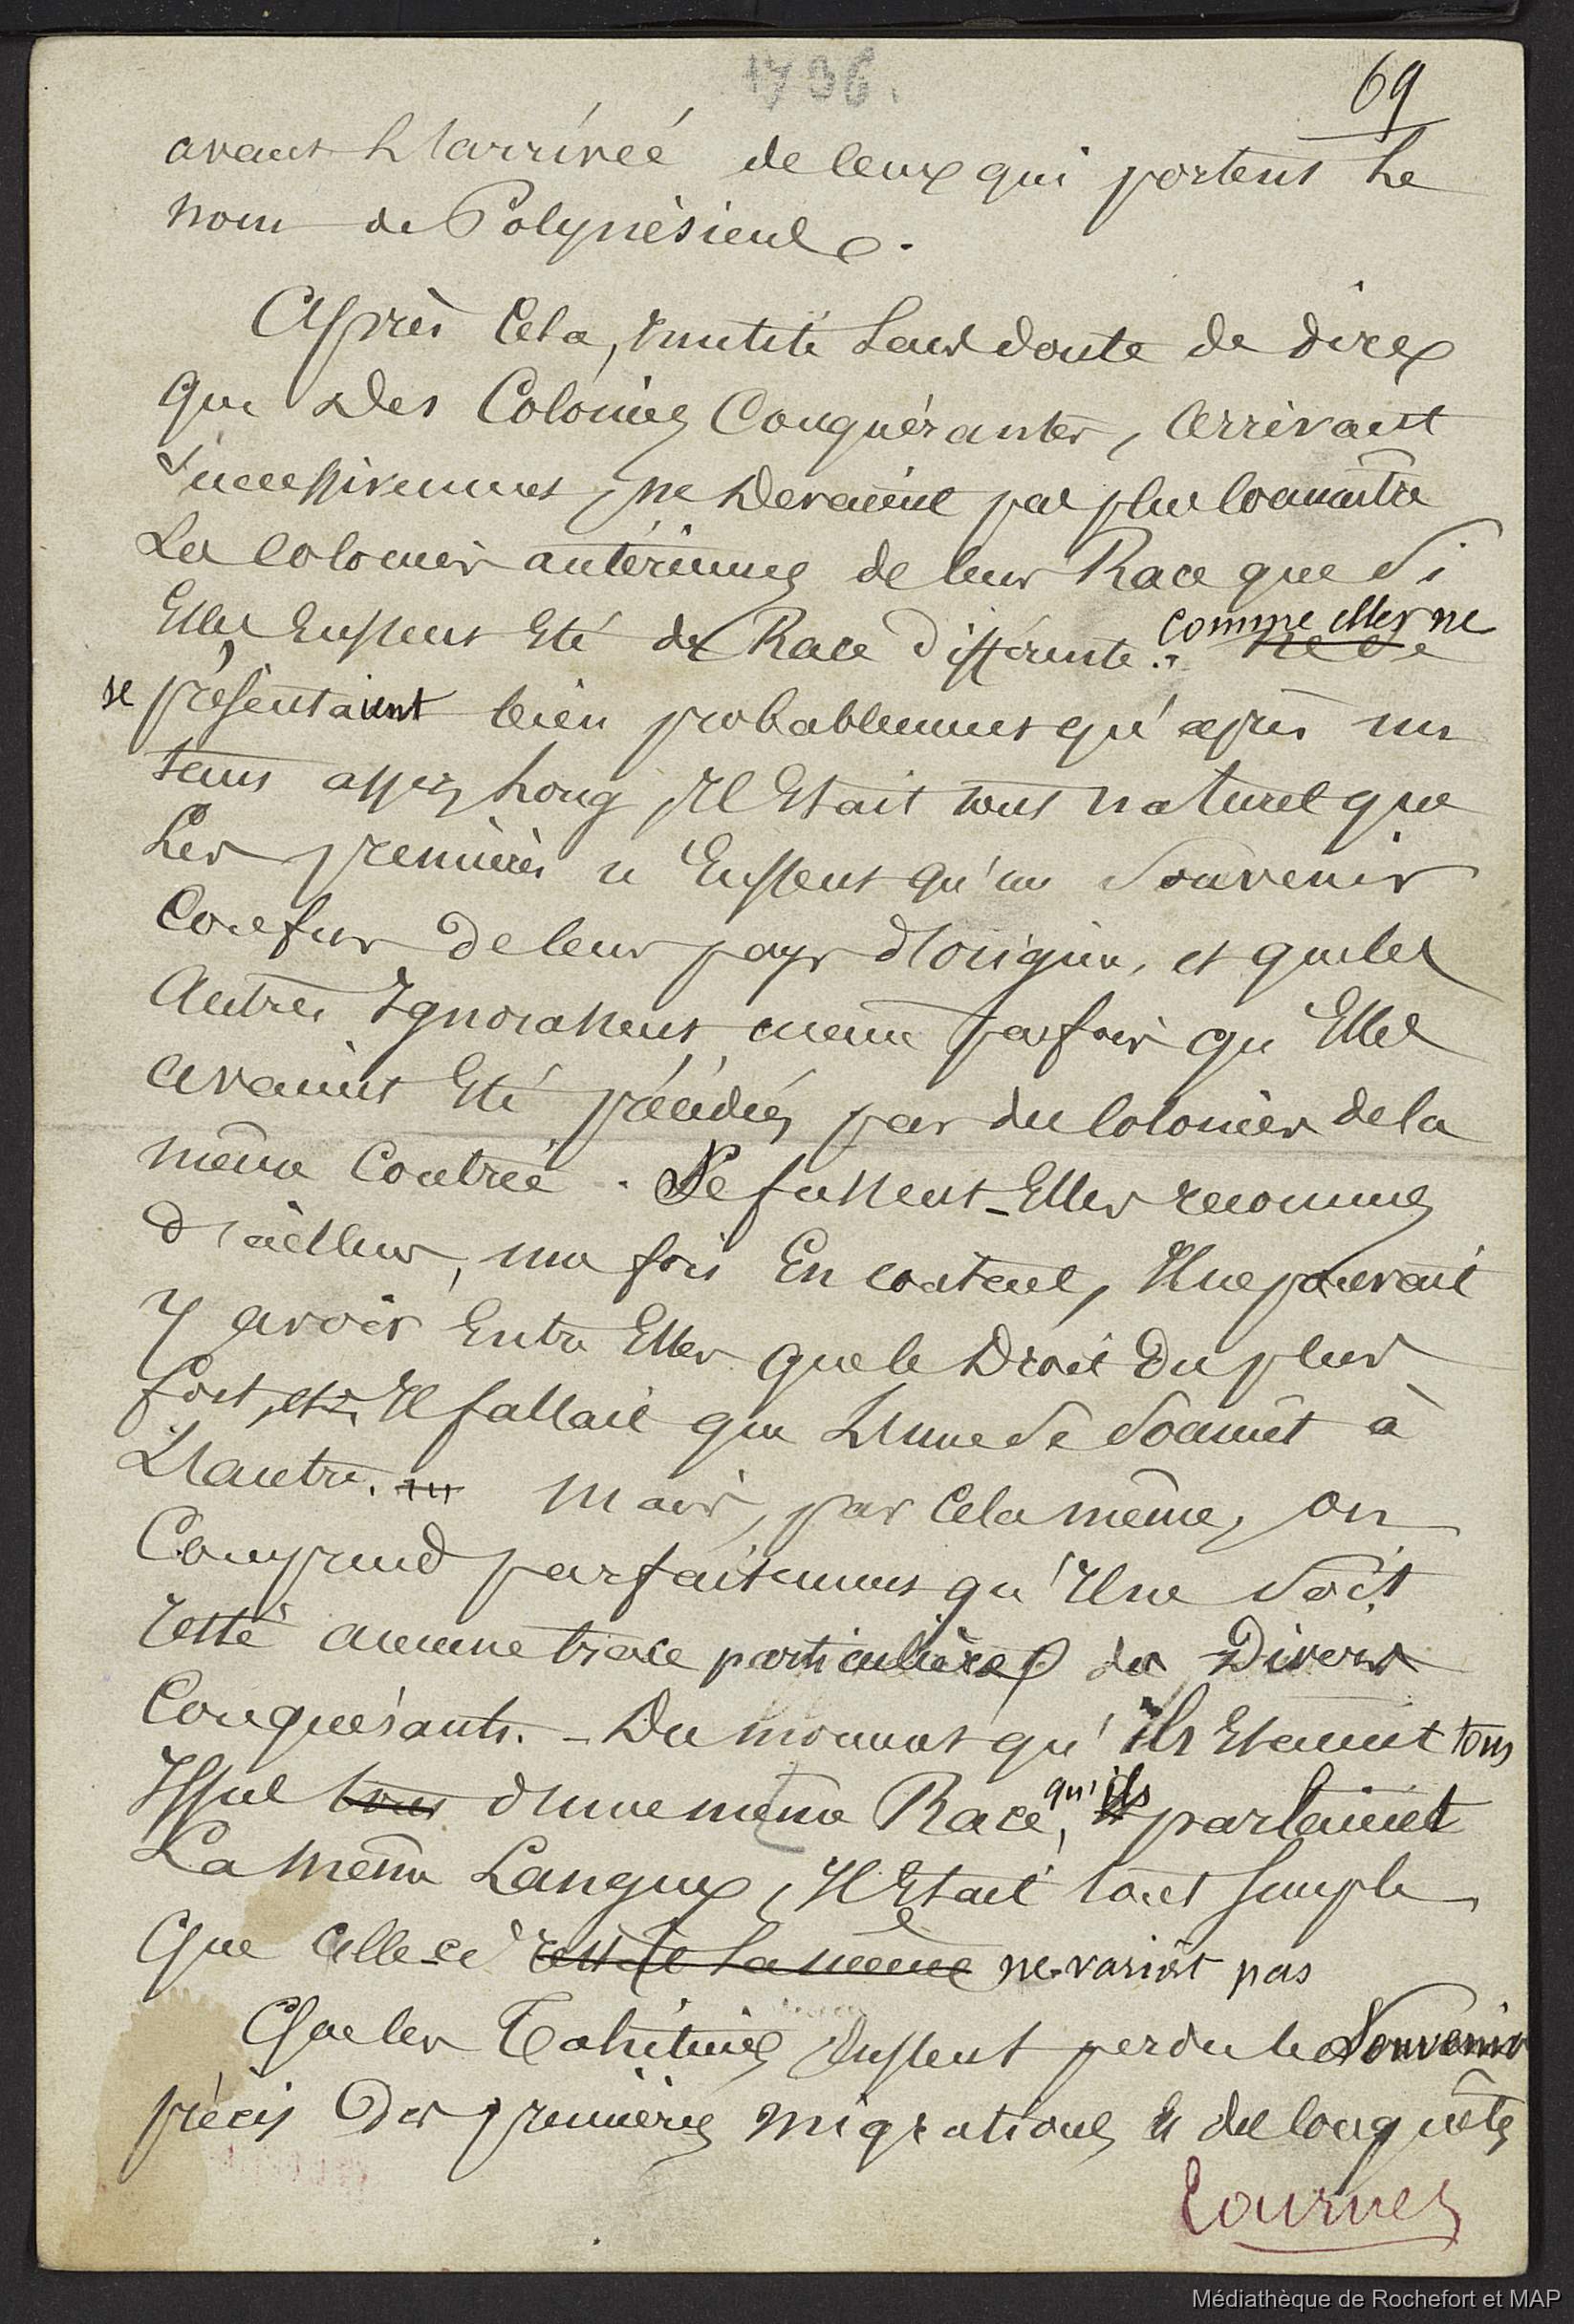 1736.
69
avant L'arrivée de ceux qui portent Le
nom de Polynésiens.
Après Cela, Inutile Sans doute de dire
que Des Colonies Conquérantes, Arrivant
Successivement, ne Devaient pas plus connaître
Les colonies antérieures de leur Race que Si
Elles Eussent Eté de Race différente. comme elles ne
ne se
se présentaient bien probablement qu'après un
tems assez Long, Il Etait tout naturel que
Les premières n'Eussent qu'un Souvenir
Confus de leur pays d'origine, et que les
Autres Ignorassent même parfois qu'Elles
avaient Eté précédées par des Colonies de la
même Contrée. Se fussent-Elles reconnues
d'ailleurs, une fois En contact, Il ne pouvait
Y avoir Entre Elles que le Droit du plus
fort, et Il fallait que L'une Se Soumît à
L'autre. Mais, par Cela même, on
Comprend parfaitement qu'Il ne Soit
resté aucune trace particulière des Divers
Conquérants. - Du moment qu'ils Etaient tous
Issus tous d'une même Race, qu'ils parlaient
La même Langue, Il Etait tout Simple
Que celle-ci restât la même ne variât pas
Que les Tahitiens Eussent perdu le Souvenir
précis Des premières migrations & des conquêtes
tournez
Médiathèque de Rochefort et MAP